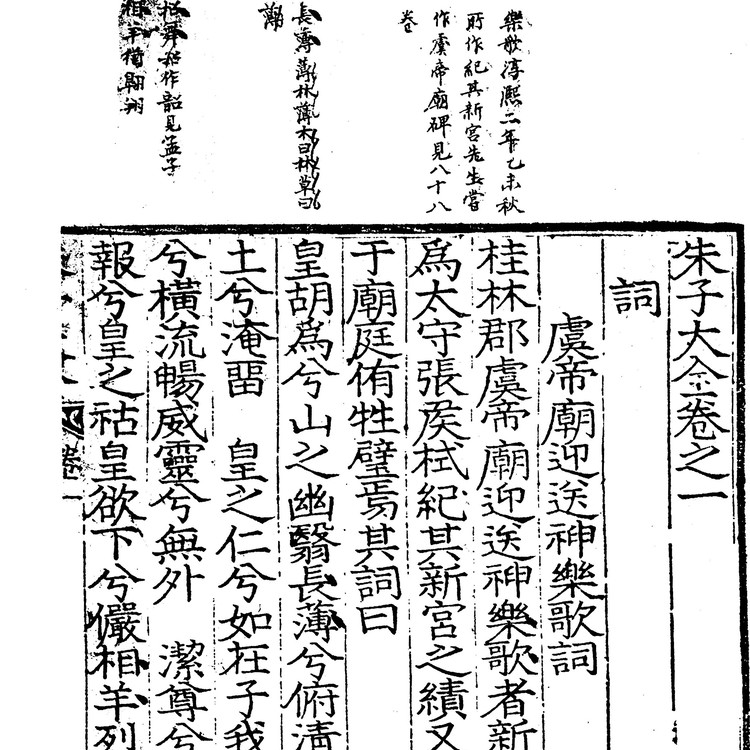 樂歌淳熙二年乙未秋
所作紀其新宮先生嘗
作虞帝廟碑見八十八
卷
長薄薄林薄木曰林草曰
薄
招舜招作韶見孟子
相羊猶翺翔
朱子大全卷之一
詞
虞帝廟迎送神樂歌詞
桂林郡虞帝廟迎送神樂歌者新
爲太守張侯栻紀其新宮之績又
于廟庭侑牲璧焉其詞曰
皇胡爲兮山之幽翳長薄兮俯淸
土兮淹畱 皇之仁兮如在子我
兮橫流暢威靈兮無外 潔尊兮
報兮皇之祜皇欲下兮儼相羊列
卷一